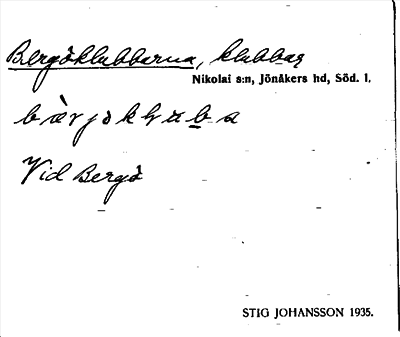 Bergöklubbarna, klubbar
Nikolai s:n, Jönåkers hd, Söd. l.
Vid Bergö
STIG JOHANSSON 1935.